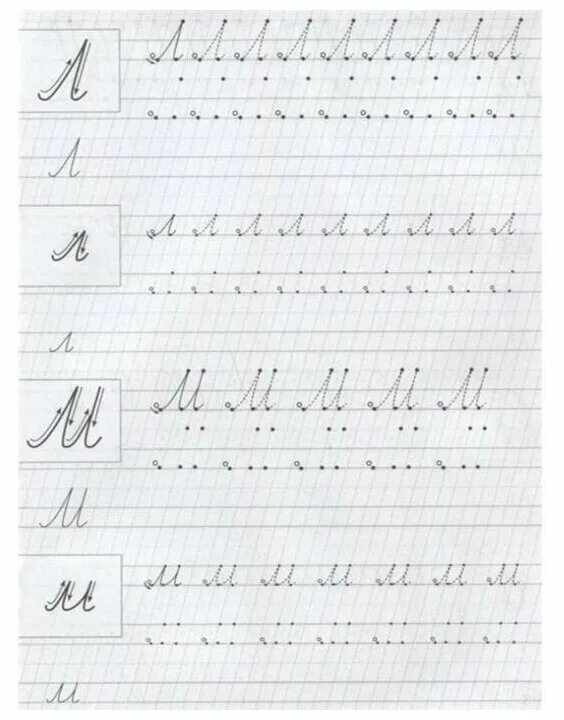 Л Л Л Л Л Л Л Л Л Л
Л
л л л л л л л л л л
л
М М М М М М
М
м м м м м м м м
м